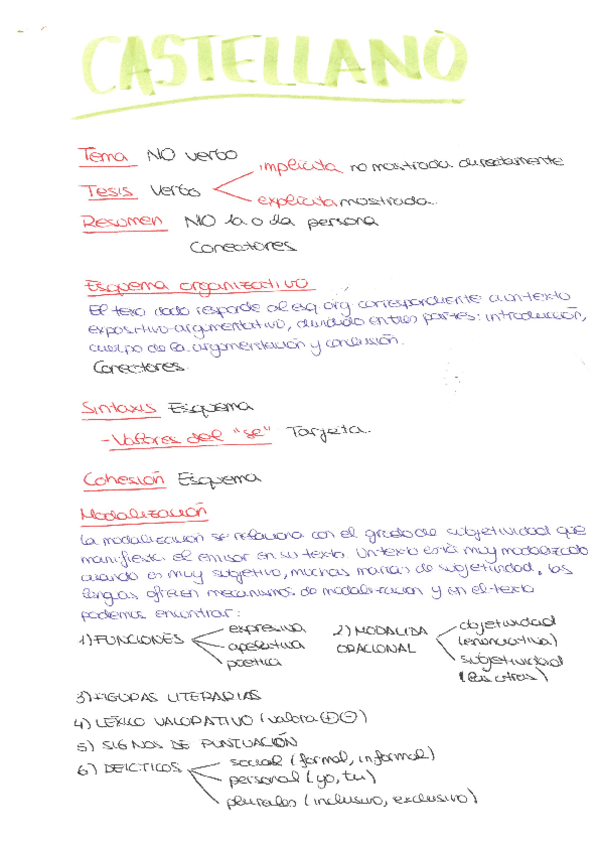 CASTELLANO
Tema NO verbo
implícita no mostrada directamente
Tesis Verbo
explícita mostrada.
Resumen NO 1a o 2a persona
Conectores
Esquema organizativo
El texto dado responde al esq. org. correspondiente a un texto
expositivo-argumentativo, dividido en tres partes: introducción,
cuerpo de la argumentación y conclusión.
Conectores.
Sintaxis Esquema
- Valores del "se" Tarjeta.
Cohesión Esquema
Modalización
La modalización se relaciona con el grado de subjetividad que
manifiesta el emisor en su texto. Un texto está muy modalizado
cuando es muy subjetivo, muchas marcas de subjetividad. Las
lenguas ofrecen mecanismos de modalización y en el texto
podemos encontrar:
1) FUNCIONES expresiva apelativa poética
2) MODALIDA ORACIONAL objetividad (enunciativa) subjetividad (las otras)
3) FIGURAS LITERARIAS
4) LÉXICO VALORATIVO (valora ⊕⊖)
5) SIGNOS DE PUNTUACIÓN
6) DEICTICOS social (formal, informal)
personal (yo, tu)
plurales (inclusivo, exclusivo)